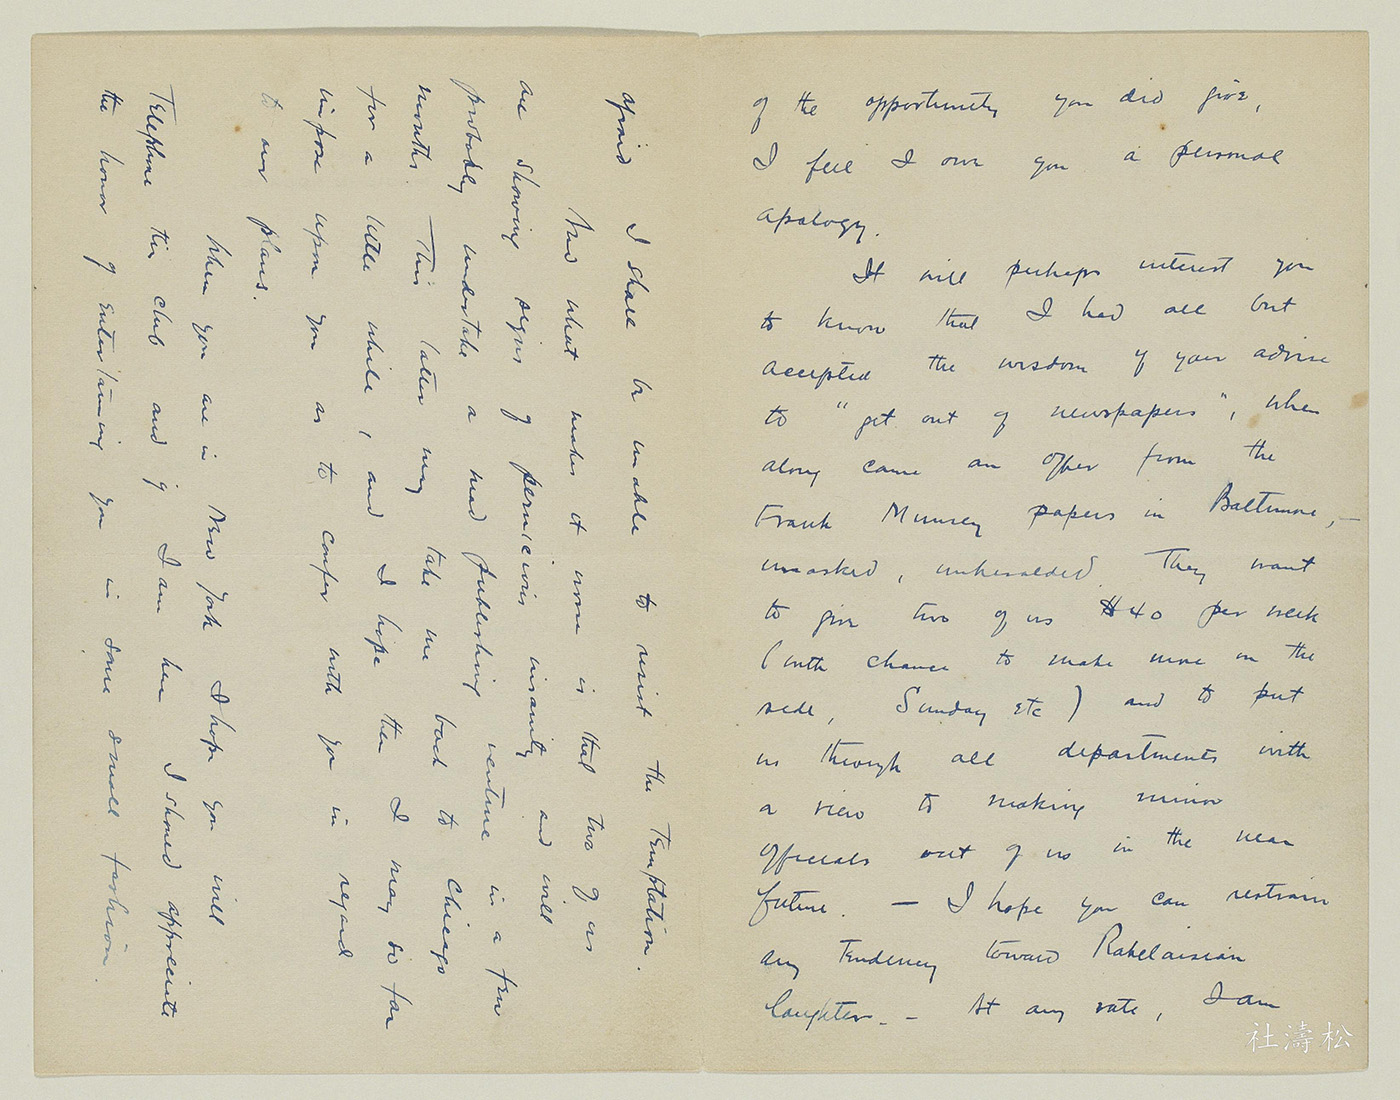 of the opportunity you did give,
I feel I owe you a personal
apology.
It will perhaps interest you
to know that I had all but
accepted the wisdom of your advice
to "get out of newspapers", when
along came an offer from the
Frank Munsey papers in Baltimore, —
unasked, unheralded. They want
to give two of us $40 per week
(with chance to make more on the
side, Sunday etc) and to put
us through all departments with
a view to making minor
officials out of us in the near
future. — I hope you can restrain
any tendency toward Rabelaisian
laughter. — At any rate, I am
afraid I shall be unable to resist the temptation.
And what makes it worse is that two of us
are showing signs of pernicious insanity and will
probably undertake a mad publishing venture in a few
months. This latter may take me back to Chicago
for a little while, and I hope then I may so far
impose upon you as to confer with you in regard
to our plans.
When you are in New York I hope you will
telephone this club and if I am here I should appreciate
the honor of entertaining you in some small fashion.
社濤松